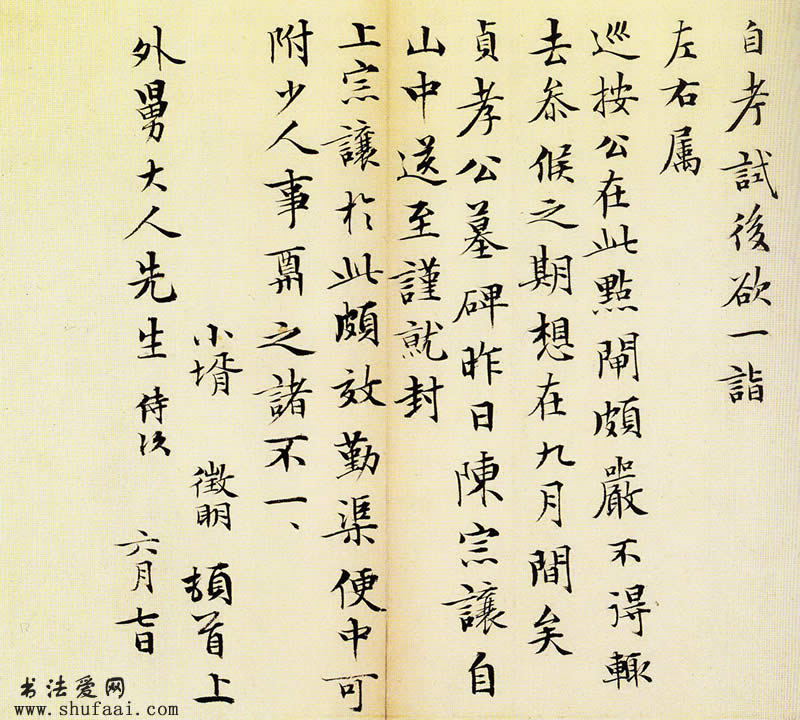 自考試後欲一詣
左右属
巡按公在此點閘頗嚴不得輙
去叅候之期想在九月間矣
貞孝公墓碑昨日陳宗讓自
山中送至謹就封
上宗讓於此頗效勤渠便中可
附少人事之諸不一、
小壻 徵明 頓首上
外舅大人先生 侍次 六月七日
书法爱网
www.shufaai.com